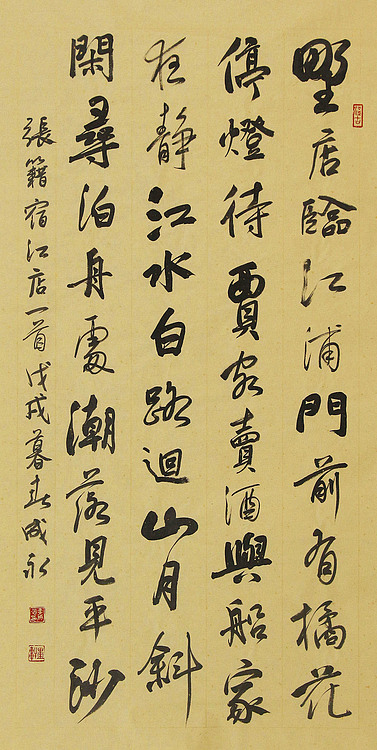 野店臨江浦門前有橘花
停燈待賈客賣酒與船家
夜靜江水白路迴山月斜
閑尋泊舟處潮落見平沙
張籍宿江店一首戊戌暮春成永